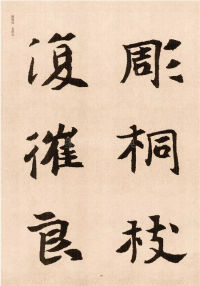 彫桐枝
復摧良